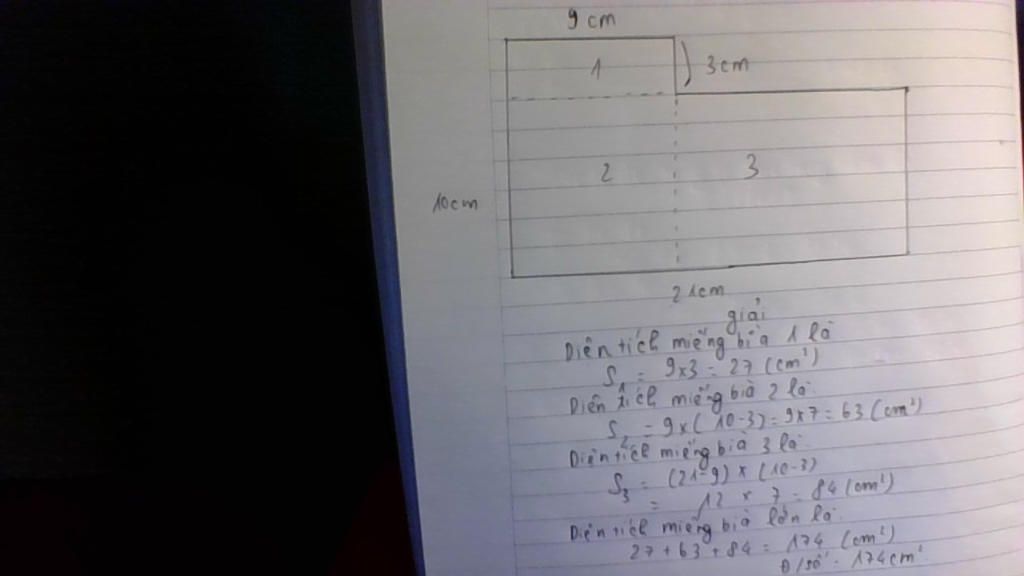 9 cm
1
3cm
2
3
10cm
21cm
giải
Diện tích miếng bià 1 là
S1 = 9x3 = 27 (cm²)
Diện tích miếng bià 2 là:
S2 = 9x(10-3) = 9x7 = 63 (cm²)
Diện tích miếng bià 3 là:
S3 = (21-9) x (10-3)
= 12 x 7 = 84 (cm²)
Diện tích miếng bià lớn là:
27 + 63 + 84 = 174 (cm²)
Đ/số: 174cm²